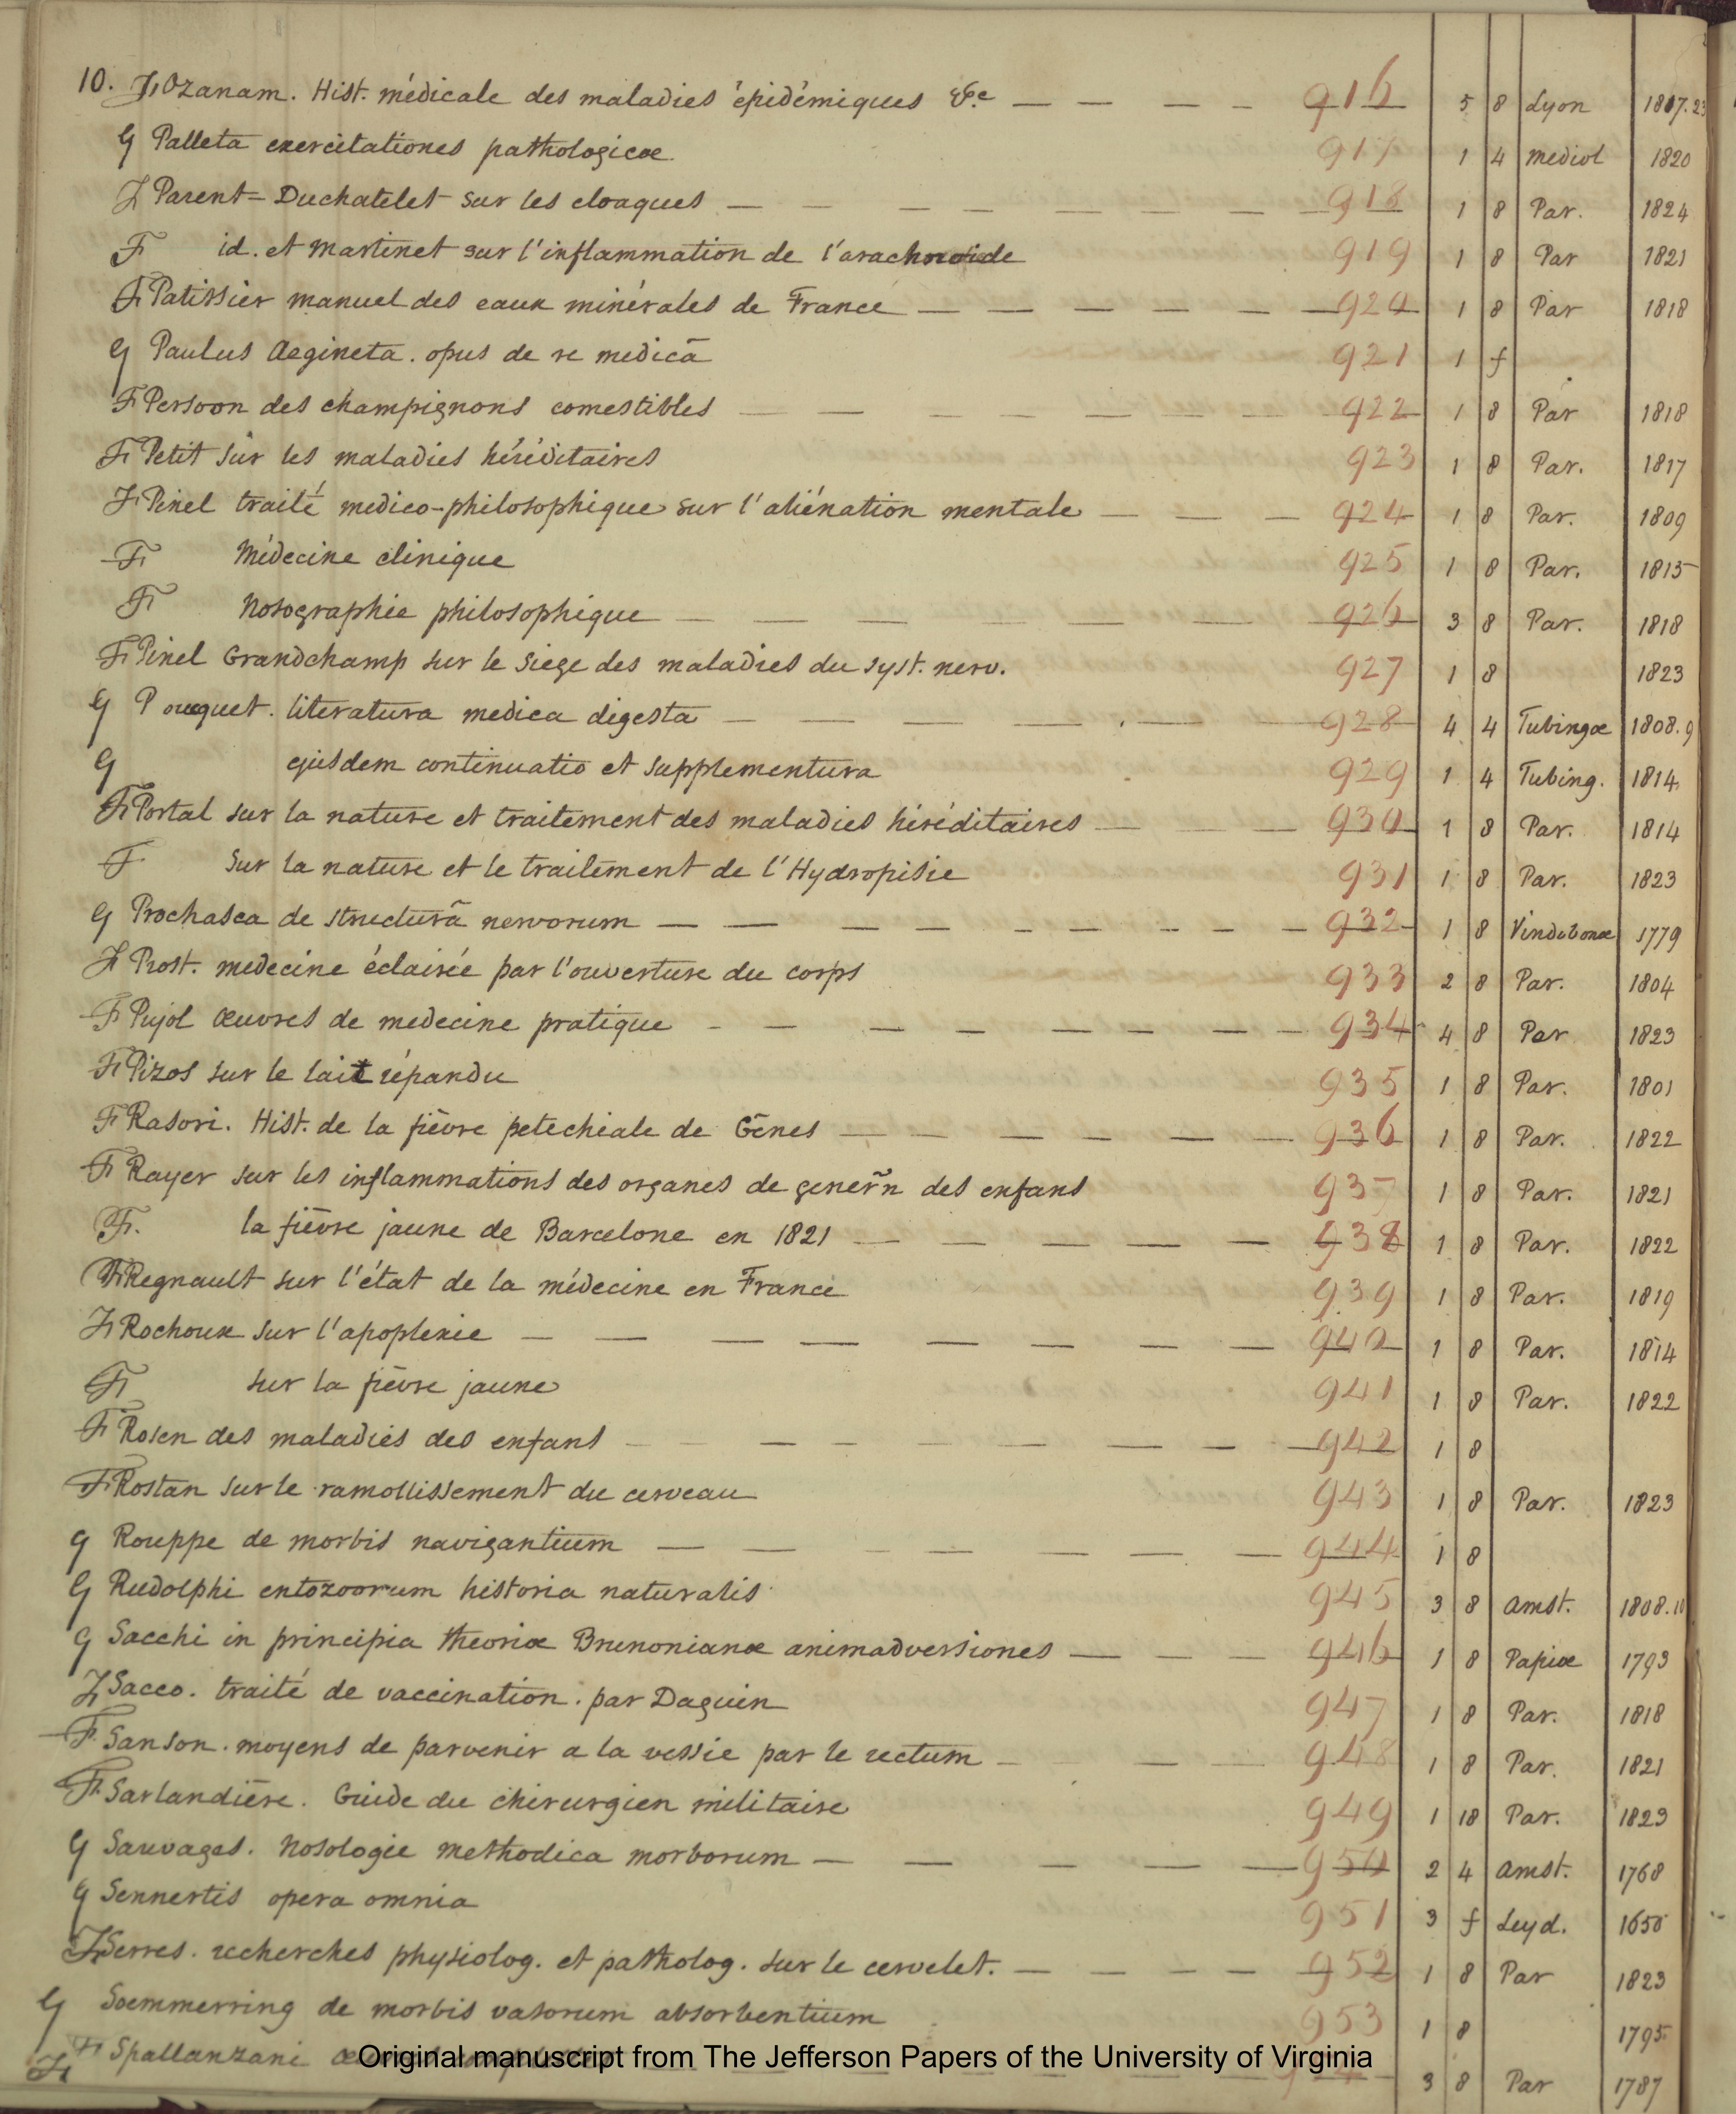 10. F Ozanam. Hist. médicale des maladies épidémiques &c — — — — 916 5 8 Lyon 1817.23
G Palleta exercitationes pathologicæ. 917 1 4 Mediol 1820
F Parent-Duchatelet sur les cloaques — — — — — — — 918 1 8 Par. 1824
F id. et Martinet sur l'inflammation de l'arachnoide 919 1 8 Par 1821
F Patissier manuel des eaux minérales de France — — — — — 920 1 8 Par 1818
G Paulus Aegineta. opus de re medicâ 921 1 f
F Persoon des champignons comestibles — — — — — — — 922 1 8 Par 1818
F Petit sur les maladies héréditaires 923 1 8 Par. 1817
F Pinel traité medico-philosophique sur l'aliénation mentale — — — 924 1 8 Par. 1809
F Médecine clinique 925 1 8 Par. 1815
F Nosographie philosophique — — — — — — 926 3 8 Par. 1818
F Pinel Grandchamp sur le siege des maladies du syst. nerv. 927 1 8 1823
G Pouquet. literatura medica digesta — — — — — — 928 4 4 Tubingæ 1808.9
G ejusdem continuatio et supplementura 929 1 4 Tubing. 1814
F Portal sur la nature et traitement des maladies héréditaires — — 930 1 8 Par. 1814
F Sur la nature et le traitement de l'Hydropisie 931 1 8 Par. 1823
G Prochasca de structurâ nervorum — — — — — — — — — 932 1 8 Vindobonæ 1779
F Prost. medecine éclairée par l'ouverture du corps 933 2 8 Par. 1804
F Pujol œuvres de medecine pratique - — — — — — — — 934 4 8 Par 1823
F Pizos sur le lait répandu 935 1 8 Par. 1801
F Rasori. Hist. de la fièvre petechiale de Gènes — — — — — — 936 1 8 Par. 1822
F Rayer sur les inflammations des organes de generñ des enfans 937 1 8 Par. 1821
F. la fièvre jaune de Barcelone en 1821 — — — — — 938 1 8 Par. 1822
F Regnault sur l'état de la médecine en France 939 1 8 Par. 1819
F Rochoux sur l'apoplexie — — — — — — — — 940 1 8 Par. 1814
F sur la fièvre jaune 941 1 8 Par. 1822
F Rosen des maladies des enfans — — — — — — — — 942 1 8
F Rostan sur le ramollissement du cerveau 943 1 8 Par. 1823
G Rouppe de morbis navigantium — — — — — — — 944 1 8
G Rudolphi entozoorum historia naturalis 945 3 8 Amst. 1808.10
G Sacchi in principia theoriæ Brunonianæ animadversiones — — — 946 1 8 Papiæ 1793
F Sacco. traité de vaccination. par Daquin 947 1 8 Par. 1818
F Sanson. moyens de parvenir a la vessie par le rectum — — — 948 1 8 Par. 1821
F Sarlandière. Guide du chirurgien militaire 949 1 18 Par. 1823
G Sauvages. Nosologie methodica morborum — — — — — 950 2 4 Amst. 1768
G Sennertis opera omnia 951 3 f Leyd. 1650
F Serres. recherches physiolog. et patholog. sur le cervelet. — — — — 952 1 8 Par 1823
G Soemmerring de morbis vasorum absorbentium 953 1 8 1795
F Spallanzani 3 8 Par 1787
Original manuscript from The Jefferson Papers of the University of Virginia